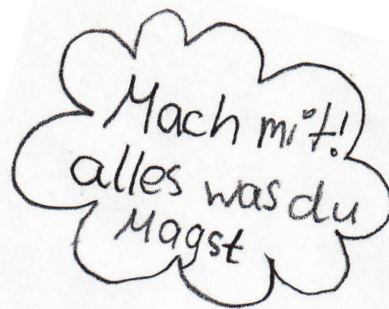 Mach mit!
alles was du
Magst